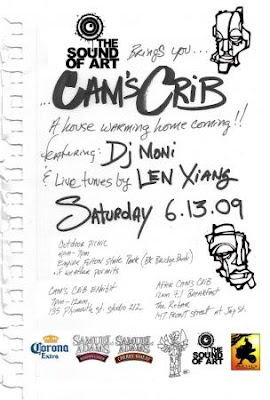 THE
SOUND
OF ART
BRINGS YOU...
...CAM'S CRIB
A house warming home coming!!
featuring: Dj Moni
& Live tunes by LEN XIANG
SATURDAY 6.13.09
Outdoor picnic
4pm-7pm
Empire Fulton State Park (Bk Bridge Park)
if weather permits
CAM'S CRIB EXHIBIT
7pm-12am
135 Plymouth st. studio 212
After CAM'S CRIB
12am til Breakfast
The Rebar
147 Front street at Jay St.
Corona
Extra
SAMUEL
ADAMS
SAMUEL
ADAMS
CHERRY WHEAT
THE
SOUND
OF ART